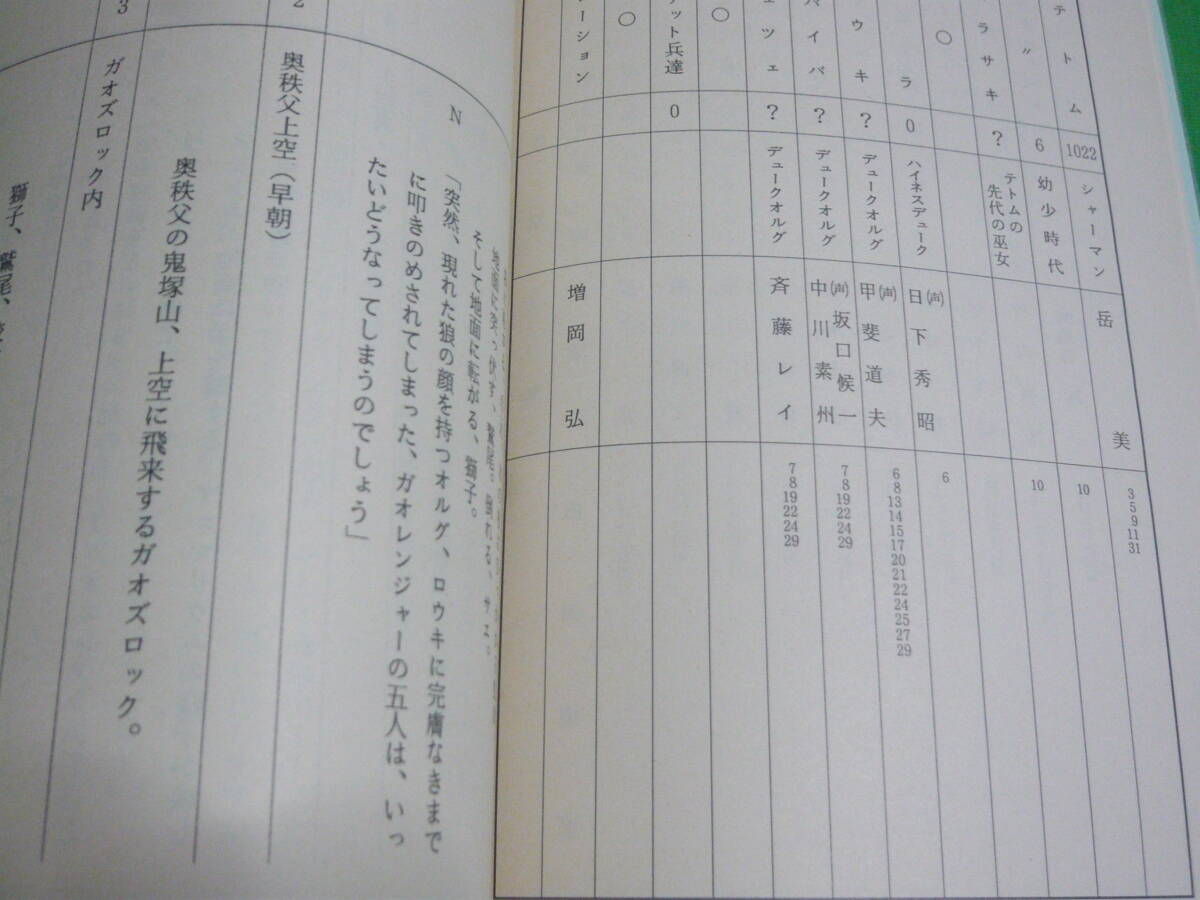 テトム 1022 シャーマン 岳美 3 5 9 11 31
〃 6 幼少時代 10
10
ラサキ ? テトムの先代の巫女
○
ラ 0 ハイネスデューク (声)日下秀昭 6
ウキ ? デュークオルグ (声)甲斐道夫 6 8 13 14 15 17 20 21 22 24 25 27 29
マイバ ? デュークオルグ (声)坂口候一 中川素州 7 8 19 22 24 29
ェツェ ? デュークオルグ 斉藤レイ 7 8 19 22 24 29
○
ット兵達 0
○
レーション 増岡弘
そして地面に転がる、獅子。
N「突然、現れた狼の顔を持つオルグ、ロウキに完膚なきまで
に叩きのめされてしまった、ガオレンジャーの五人は、いっ
たいどうなってしまうのでしょう」
2 奥秩父上空(早朝)
奥秩父の鬼塚山、上空に飛来するガオズロック。
3 ガオズロック内
獅子、鷲尾、